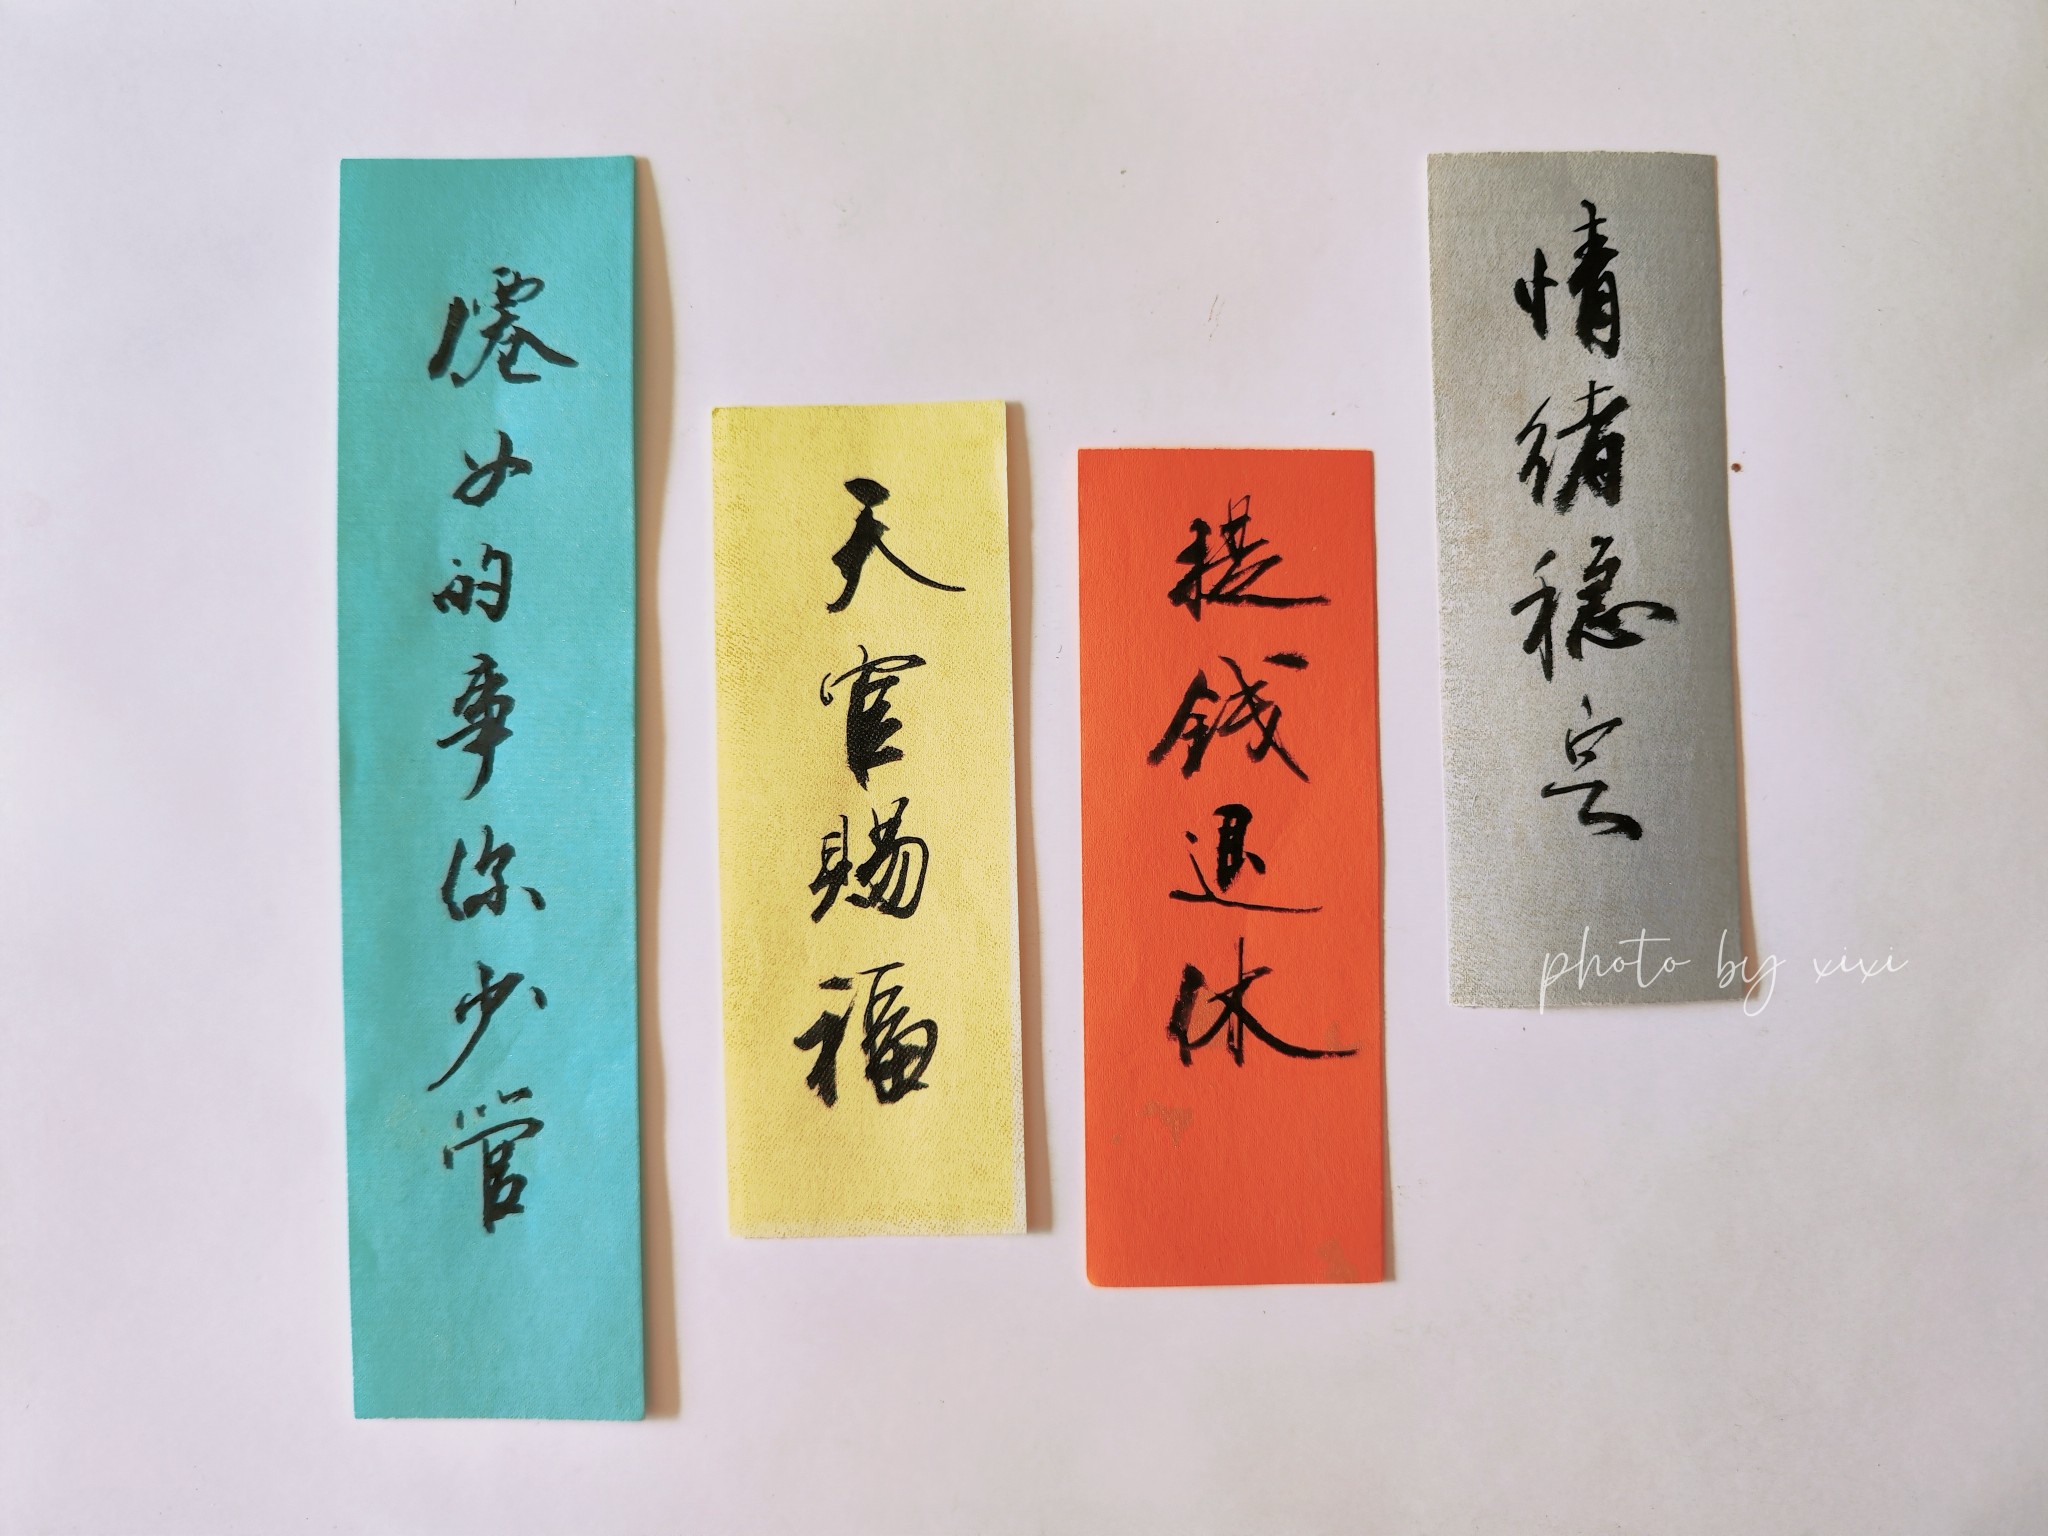 僊女的事你少管
天官賜福
提錢退休
情緒穩定
photo by xixi